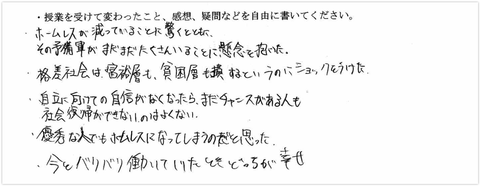 ・授業を受けて変わったこと、感想、疑問などを自由に書いてください。
・ホームレスが減っていることに驚くとともに、
その予備軍がまだまだたくさんいることに懸念を抱いた。
・格差社会は、富裕層も、貧困層も損するというのにショックをうけた。
・自立に向けての自信がなくなったら、まだチャンスがある人も
社会復帰ができないのはよくない。
・優秀な人でもホームレスになってしまうのだと思った。
・今とバリバリ働いていたときどっちが幸せ